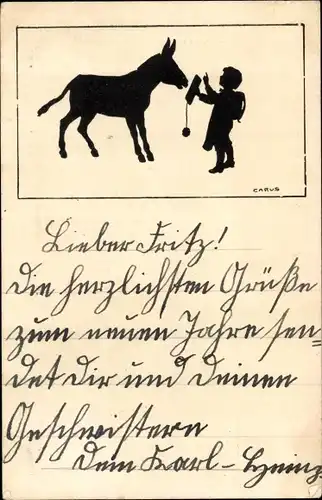 CARUS
Lieber Fritz!
Die herzlichsten Grüße
zum neuen Jahre sen=
det Dir und deinen
Geschwistern
Dein Karl - Heinz